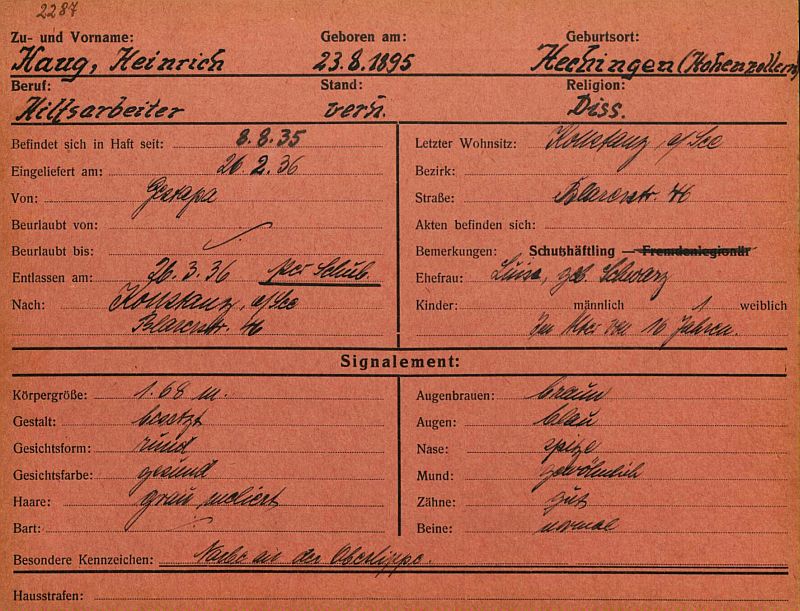 2287
Zu- und Vorname: Geboren am: Geburtsort:
Haug, Heinrich 23.8.1895 Hechingen (Hohenzollern)
Beruf: Stand: Religion:
Hilfsarbeiter verh. Diss.
Befindet sich in Haft seit: 8.8.35
Eingeliefert am: 26.2.36
Von: Gestapa
Beurlaubt von:
Beurlaubt bis:
Entlassen am: 26.3.36 per Schub.
Nach: Konstanz, a/See
Blarerstr. 46
Letzter Wohnsitz: Konstanz a/See
Bezirk:
Straße: Blarerstr. 46
Akten befinden sich:
Bemerkungen: Schutzhäftling — Fremdenlegionär
Ehefrau: Luise, geb. Schwarz
Kinder: männlich 1 weiblich
Im Alter von 16 Jahren.
Signalement:
Körpergröße: 1.68 m.
Gestalt: besetzt
Gesichtsform: rund
Gesichtsfarbe: gesund
Haare: grau meliert
Bart:
Augenbrauen: braun
Augen: blau
Nase: spitze
Mund: gewöhnlich
Zähne: gut
Beine: normal
Besondere Kennzeichen: Narbe an der Oberlippe.
Hausstrafen: